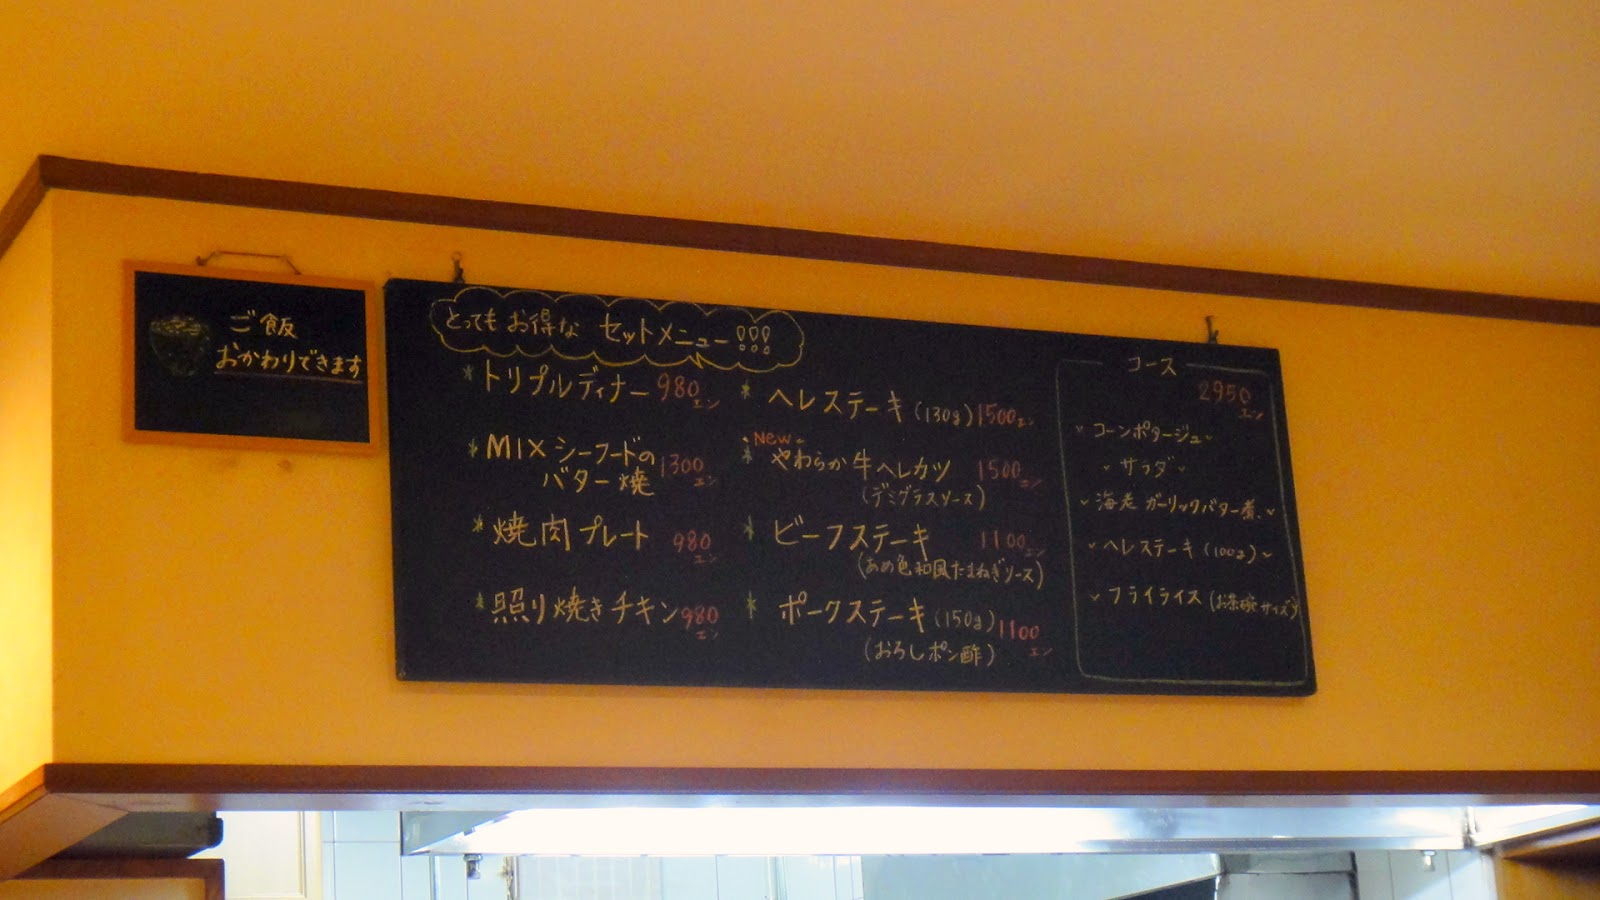 ご飯
おかわりできます
とってもお得な セットメニュー!!!
*トリプルディナー 980エン
*MIXシーフードの
バター焼 1300エン
*焼肉プレート 980エン
*照り焼きチキン 980エン
*ヘレステーキ(130g) 1500エン
New
*やわらか牛ヘレカツ 1500エン
(デミグラスソース)
*ビーフステーキ 1100エン
(あめ色和風たまねぎソース)
*ポークステーキ(150g) 1100エン
(おろしポン酢)
コース
2950エン
コーンポタージュ
サラダ
海老ガーリックバター煮
ヘレステーキ(100g)
フライライス(お茶碗サイズ)